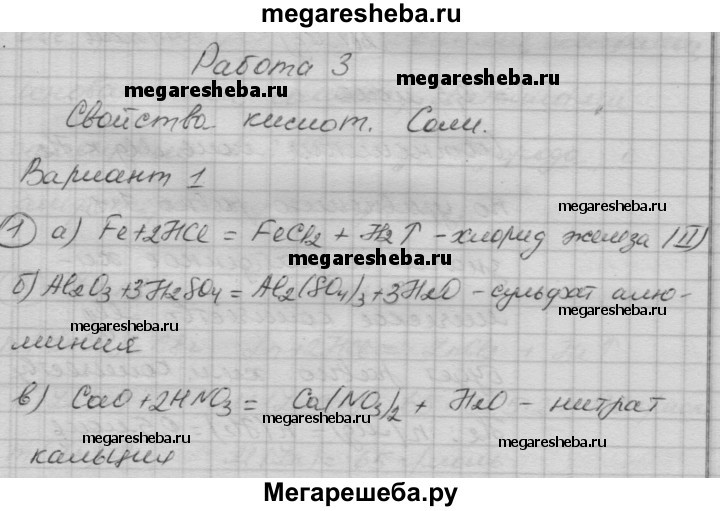 megaresheba.ru
Работа 3
megaresheba.ru
megaresheba.ru
Свойства кислот. Соли.
Вариант 1
megaresheba.ru
megaresheba.ru
1 а) Fe+2HCl = FeCl2 + H2↑ - хлорид железа (II)
megaresheba.ru
megaresheba.ru
б) Al2O3+3H2SO4 = Al2(SO4)3+3H2O - сульфат алю-
megaresheba.ru
megaresheba.ru
миния
в) CaO+2HNO3 = Ca(NO3)2 + H2O - нитрат
megaresheba.ru
megaresheba.ru
megaresheba.ru
кальция
Мегарешеба.ру